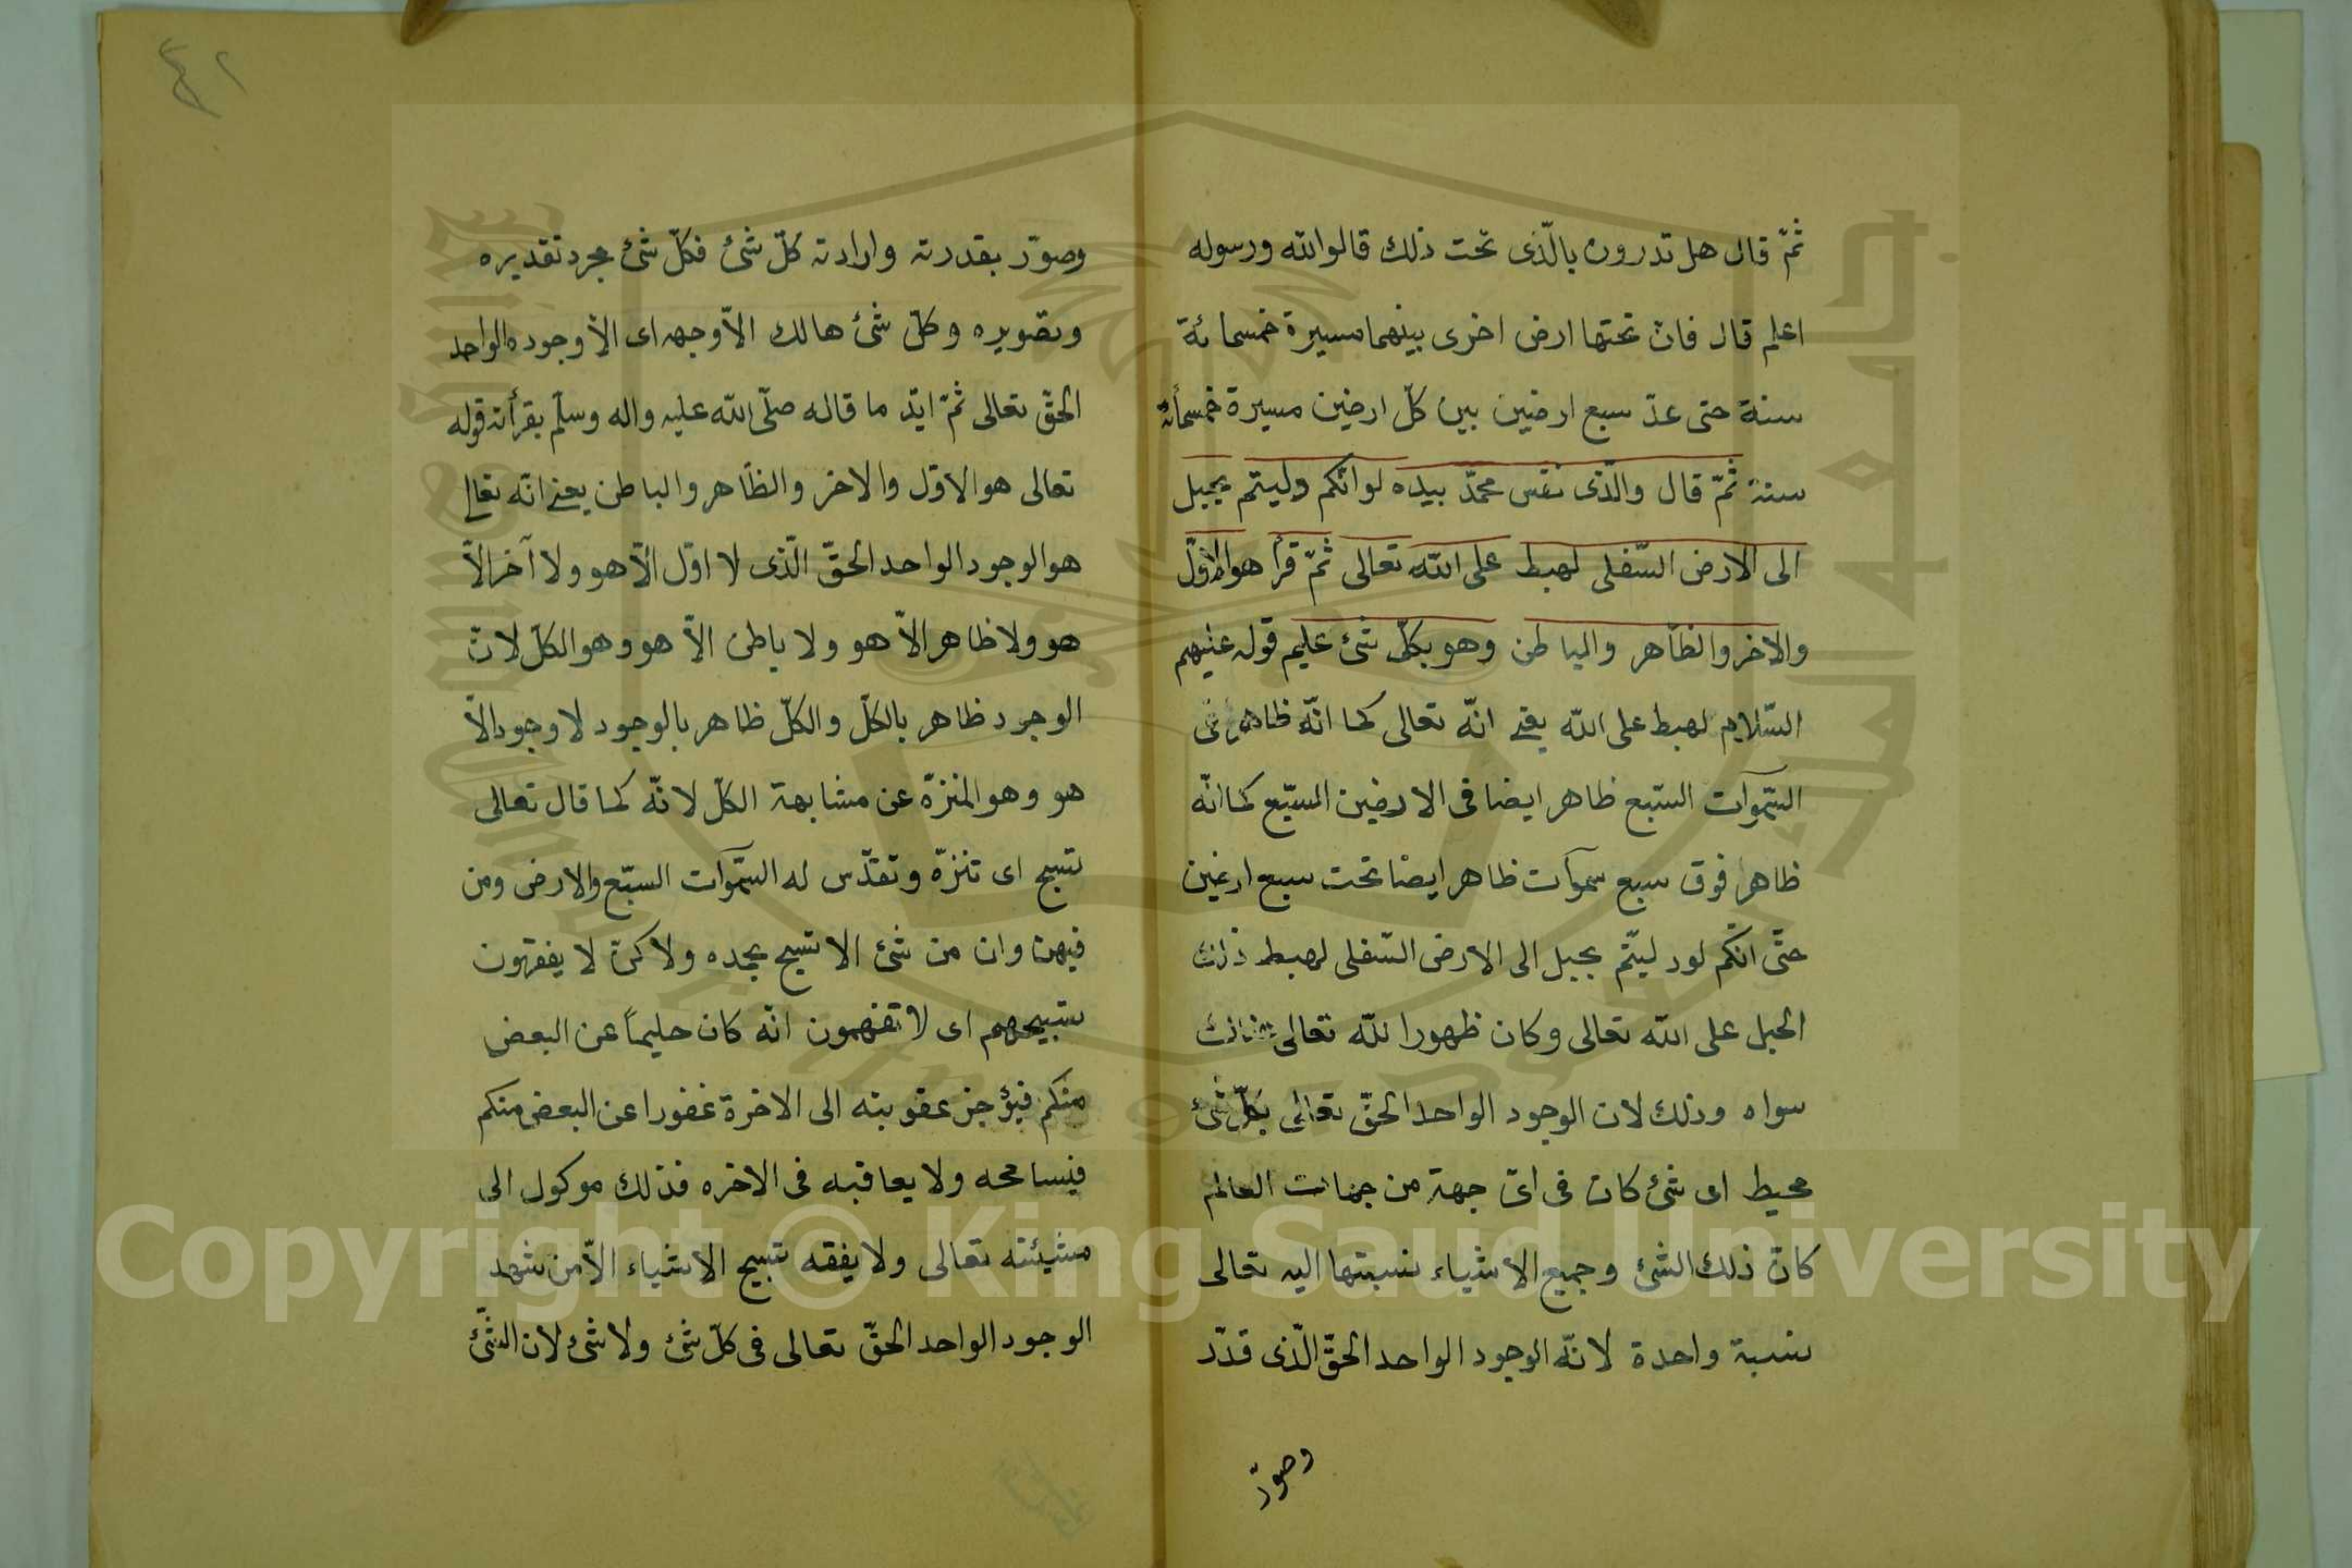 ثمّ قال هل تدرون بالّذى تحت ذلك قالوا الله ورسوله
اعلم قال فانّ تحتها ارض اخرى بينهما مسيرة خمسمائة
سنة حتى عدّ سبع ارضين بين كلّ ارضين مسيرة خمسمأئة
سنة ثمّ قال والّذى نفس محمّد بيده لو انّكم دليتم بحبل
الى الارض السّفلى لهبط على الله تعالى ثمّ قرأ هو الاوّل
والاخر والظّاهر والباطن وهو بكلّ شئ عليم قوله عليهم
السّلام لهبط على الله يعنى انّه تعالى كما انّه ظاهر فى
السّموآت السّبع ظاهر ايضا فى الارضين السّبع كما انّه
ظاهر فوق سبع سموآت ظاهر ايضا تحت سبع ارضين
حتّى انّكم لو دليتّم بحبل الى الارض السّفلى لهبط ذلك
الحبل على الله تعالى وكان ظهورا لله تعالى
سواه وذلك لان الوجود الواحد الحقّ تعالى بكلّ شئ
محيط اى شئ كان فى اىّ جهة من جهات العالم
كان ذلك الشئ وجميع الاشياء نسبتها اليه تعالى
نسبة واحدة لانّه الوجود الواحد الحقّ الّذى قدّر
وصوّر
٤٢
وصوّر بقدرته وارادته كلّ شئ فكلّ شئ مجرد تقديره
وتصويره وكلّ شئ هالك الاّ وجهه اى الاّ وجوده الواحد
الحقّ تعالى ثمّ ايّد ما قاله صلّى الله عليه واله وسلّم بقرأته قوله
تعالى هو الاوّل والاخر والظّاهر والباطن يعنى انّه تعالى
هو الوجود الواحد الحقّ الّذى لا اوّل الاّ هو ولا آخر الاّ
هو ولا ظاهر الاّ هو ولا باطن الاّ هو وهو الكلّ لانّ
الوجود ظاهر بالكلّ والكلّ ظاهر بالوجود لا وجود الاّ
هو وهو المنزّه عن مشابهة الكلّ لانّه كما قال تعالى
تسبح اى تنزّه وتقدّس له السّموآت السّبع والارض ومن
فيهن وان من شئ الا تسبح بحمده ولاكن لا يفقهون
تسبيحهم اى لا تفهمون انّه كان حليماً عن البعض
منكم فيؤخر عقوبته الى الاخرة غفورا عن البعض منكم
فيسامحه ولا يعاقبه فى الاخره فذلك موكول الى
مشيئته تعالى ولا يفقه تسبيح الاشياء الاّ من شهد
الوجود الواحد الحقّ تعالى فى كلّ شئ ولا شئ لان الشّئ
Copyright © King Saud University